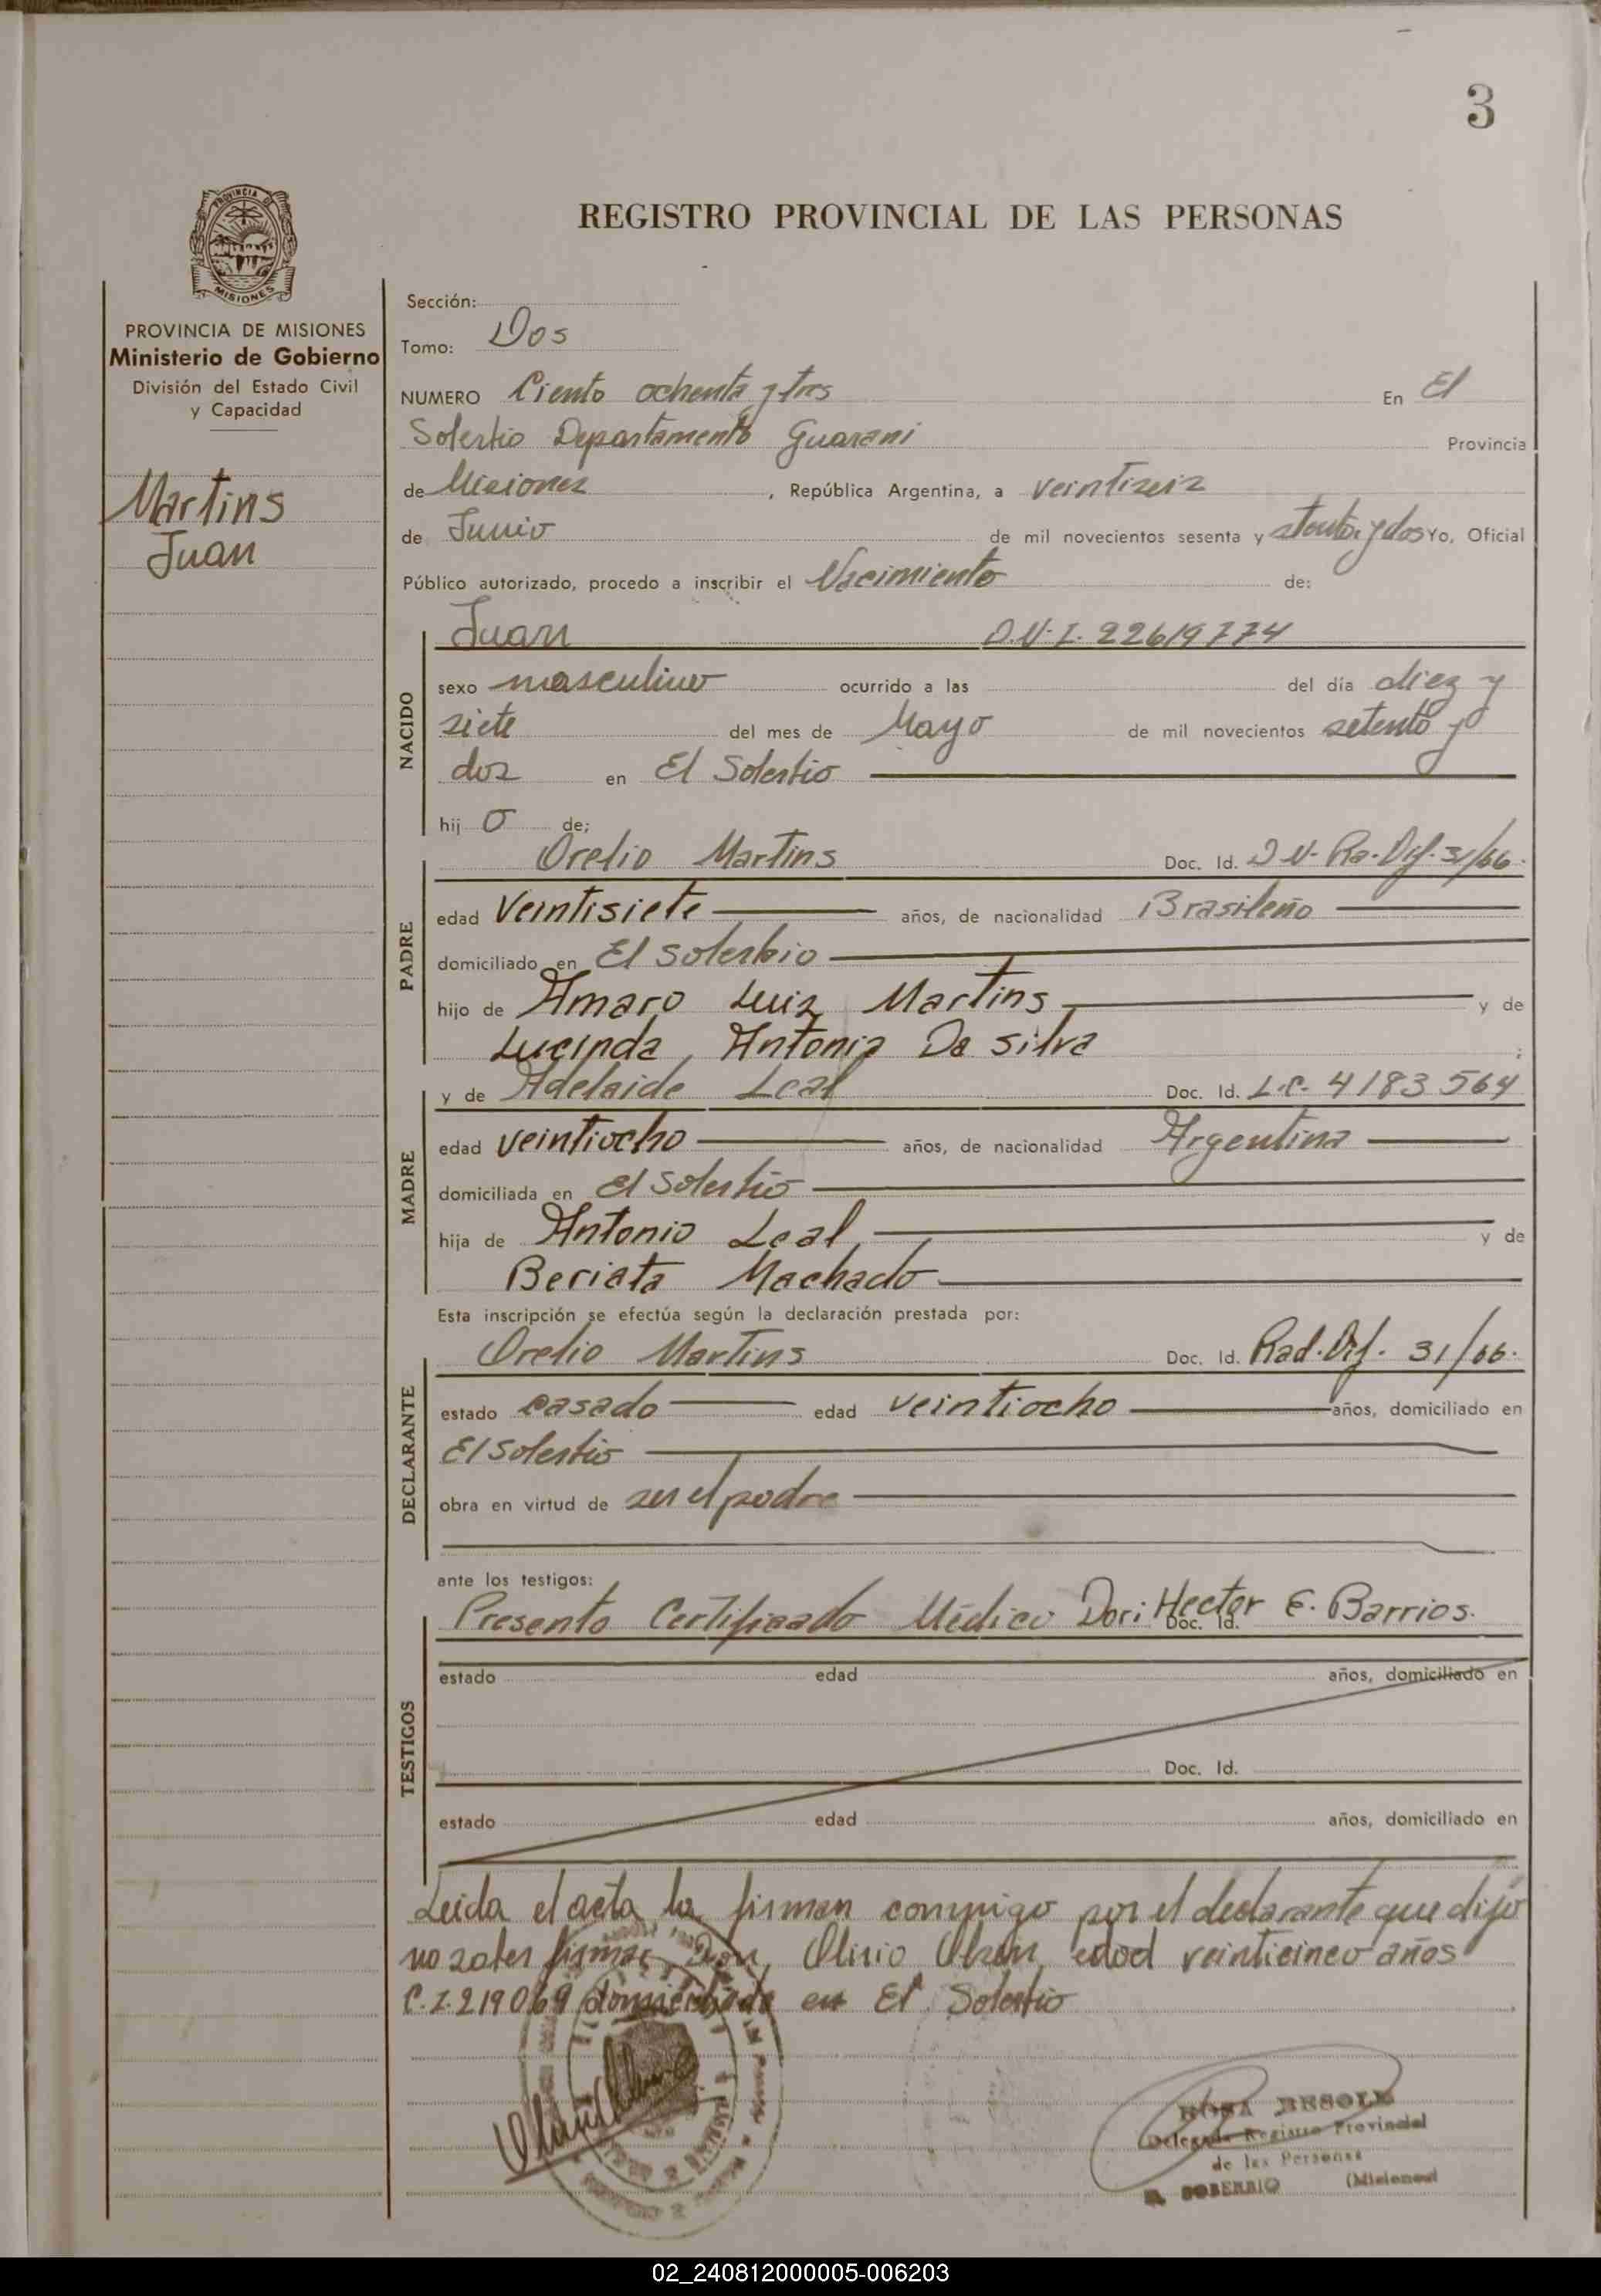 3
PROVINCIA DE
MISIONES
REGISTRO PROVINCIAL DE LAS PERSONAS
PROVINCIA DE MISIONES
Ministerio de Gobierno
División del Estado Civil
y Capacidad
Martins
Juan
Sección:
Tomo: Dos
NUMERO Ciento ochenta y tres En El
Soberbio Departamento Guarani Provincia
de Misiones, República Argentina, a veintiseis
de Junio de mil novecientos sesenta y setenta y dos Yo, Oficial
Público autorizado, procedo a inscribir el Nacimiento de:
NACIDO
Juan D.N.I. 22619774
sexo masculino ocurrido a las del día diez y
siete del mes de Mayo de mil novecientos setenta y
dos en El Soberbio
hij o de;
PADRE
Orelio Martins Doc. Id. D.N. Ra. Dif. 31/66.
edad Veintisiete años, de nacionalidad Brasileño
domiciliado en El Soberbio
hijo de Amaro Luiz Martins y de
Lucinda Antonia Da Silva ;
MADRE
y de Adelaide Leal Doc. Id. L.C. 4183564
edad veintiocho años, de nacionalidad Argentina
domiciliada en El Soberbio
hija de Antonio Leal y de
Beriata Machado
Esta inscripción se efectúa según la declaración prestada por:
DECLARANTE
Orelio Martins Doc. Id. Rad. Dif. 31/66.
estado casado edad veintiocho años, domiciliado en
El Soberbio
obra en virtud de ser el padre
ante los testigos:
TESTIGOS
Presento Certificado Médico Dori Hector E. Barrios. Doc. Id.
estado edad años, domiciliado en
Doc. Id.
estado edad años, domiciliado en
Leida el acta la firman conmigo por el declarante que dijo
no saber firmar, Don, Olirio edad veinticinco años
C.I. 219069 domiciliado en El Soberbio
ROSA BESOLD
Delegada Registro Provincial
de las Personas
EL SOBERBIO (Misiones)
02_240812000005-006203